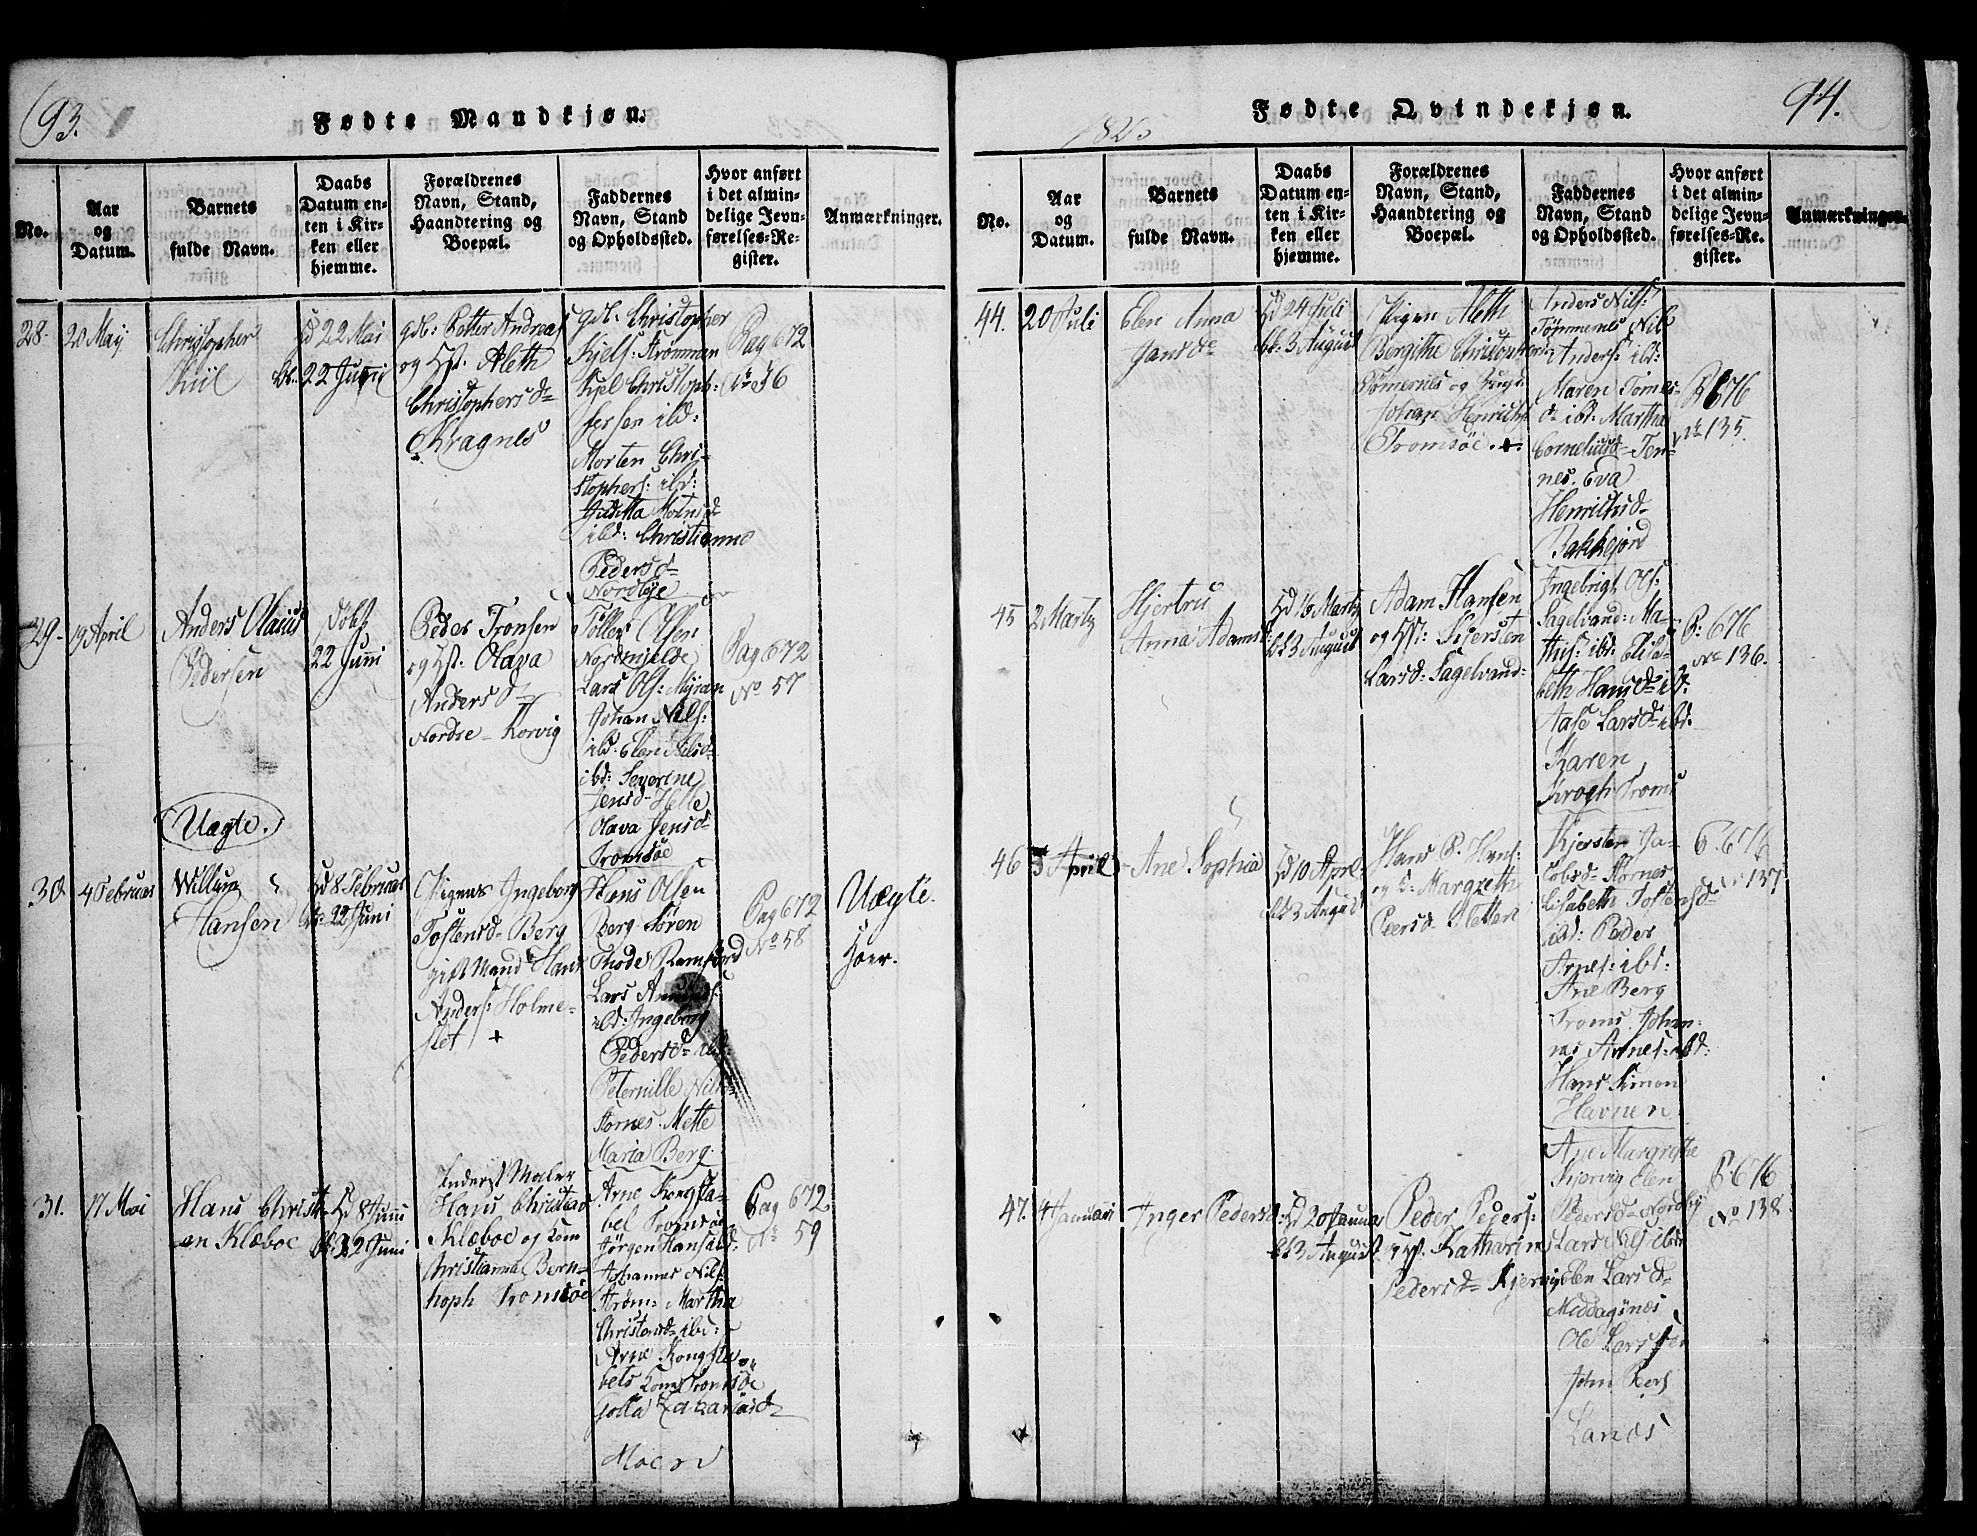 93.
Fødte Mandkjøn.
No.
Aar
og
Datum.
Barnets
fulde Navn.
Daabs
Datum en-
ten i Kir-
ken eller
hjemme.
Forældrenes
Navn, Stand,
Haandtering og
Boepæl.
Faddernes
Navn, Stand
og Opholdssted.
Hvor anført
i det almin-
delige Jevn-
førelses-Re-
gister.
Anmærkninger.
28.
20 May
Christopher
Kiil
hd 22 Mai
22 Juni
gdb: Petter Andreas
og Hst. Aleth
Christophersd
Kragnes
gdb. Christopher
Kjels: Strømmen
Kjel Christoph:
fersen ibd:
Morten Chri-
stophers: ibd:
Juditta Mortensd
ibd: Christianne
Pedersd
Nordbye
Pag 672
No 56
29.
19 April
Anders Olaus
Pedersen
døbt
22 Juni
Peder Tronsen
og Hst. Olava
Andersd
Nordre Korvig
Toller Olsen
Nordmjelde
Lars Ols: Myran
Johan Nils:
ibd. Elen Nilsd
ibd: Severine
Jensd Helle
Olava Jensd
Tromsøe
Pag 672
No 57
Uægte.
30.
4 Februar
Willum
Hansen
hd 8 Februar
22 Juni
Pigens Ingeborg
Tostensd Berg
gift Mand Hans
Anders: Holme-
slet +
Hans Olsen
Berg Søren
Thode Ramfjord
Lars
ibd: Ingeborg
Pedersd ibd:
Peternille Nils
Stornes. Mette
Maria Berg.
Pag 672
No 58
Uægte.
Hoer.
31.
17 Mai
Hans Christi-
an Klæboe
hd 8 Juni
22 Juni
Maler
Hans Christian
Klæboe og Kone
Christianna Bern-
hoph Tromsøe
Arne Kongsta-
bel Tromsøe
Jørgen Hans: ibd:
Johannes Nils:
Strøm: Martha
Christensd ibd:
Arne Kongsta-
bels Kone Tromsøe
Zakariasd
Moen
Pag 672
No 59
94.
Fødte Qvindekjøn.
182
No.
Aar
og
Datum.
Barnets
fulde Navn.
Daabs
Datum en-
ten i Kir-
ken eller
hjemme.
Forældrenes
Navn, Stand,
Haandtering og
Boepæl.
Faddernes
Navn, Stand
og Opholdssted.
Hvor anført
i det almin-
delige Jevn-
førelses-Re-
gister.
Anmærkninger.
44.
20 Juli
Elen Anna
Jansde
hd 24 Juli
3 August
Pigen Aleth
Bergithe Christophersd
Tømernes og
Johan Henrich
Tromsøe. +.
Anders Nils:
Tømmernes Nils
Anders: ibd:
Maren Tomes-
d ibd: Martha
Corneliusd Ten-
nes. Eva
Henrichsd
Bakkejord
P 676
No 135.
45
2 Martz
Hjertru
Anna Adamsd:
hd 16 Martz
3 August
Adam Hansen
og Hst: Kjersten
Larsd: Sagelvand:
Ingebrigt Ols:
Sagelvand: Ma-
this: ibd: Elisa-
beth Hansd ibd:
Aase Larsd ibd.
Karen
Krogh Troms
P: 676
No 136.
46
5 April
Ane Sophia
hd 10 April
3 August
Hans P. Hans:
og H: Margreth
Peersd Sletten
Kjersten Ja-
cobsd Stornes
Lisabeth Tostensd
ibd: Peder
Arnes: ibd:
Ane Berg
Troms. Johan-
nes Arnes: ibd:
Hans Simon
Havnen
P. 676
No 137
47.
14 Januari
Inger Pedersd:
hd 20 Januar
3 August
Peder Peders:
Hst. Katharine
Pedersd Kjervig
Ane Margrethe
Kjervig Elen
Pedersd Nordby
Lars Nils: ibd:
Elen Larsd
Middagsnes
Ole Larssen
John Peers
Lanes
P 676
No 138.